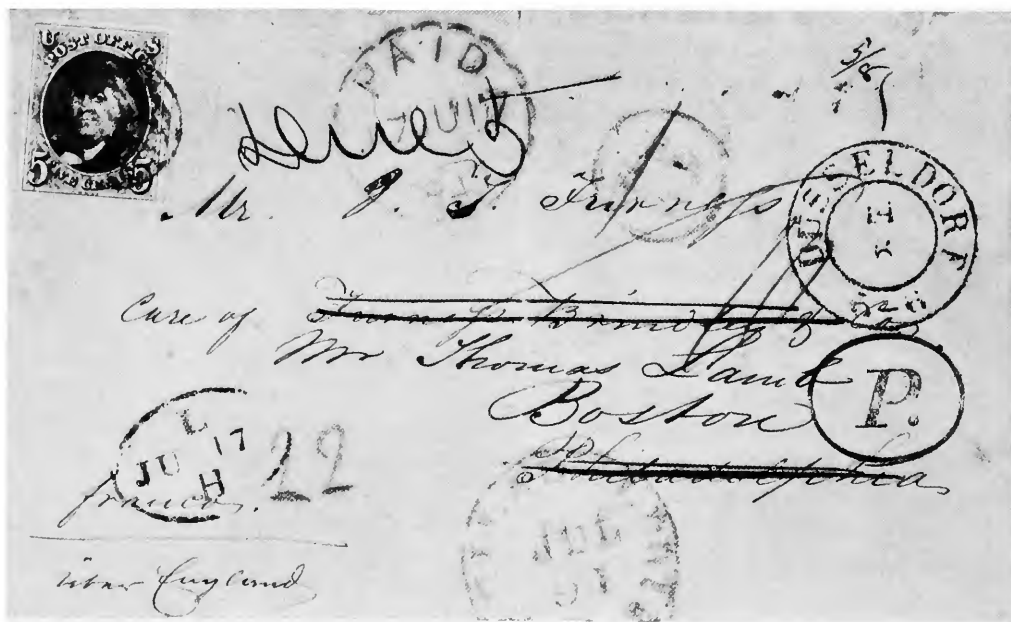 U S
POST OFFICE
5 5
PAID
5/8
Mr. J. T. Furness
DÜSSELDORF
Care of Furness Brinley &
Mr Thomas Lamb
Boston
P.
Philadelphia
L
JU 17
H
22
franco.
über England
JUL